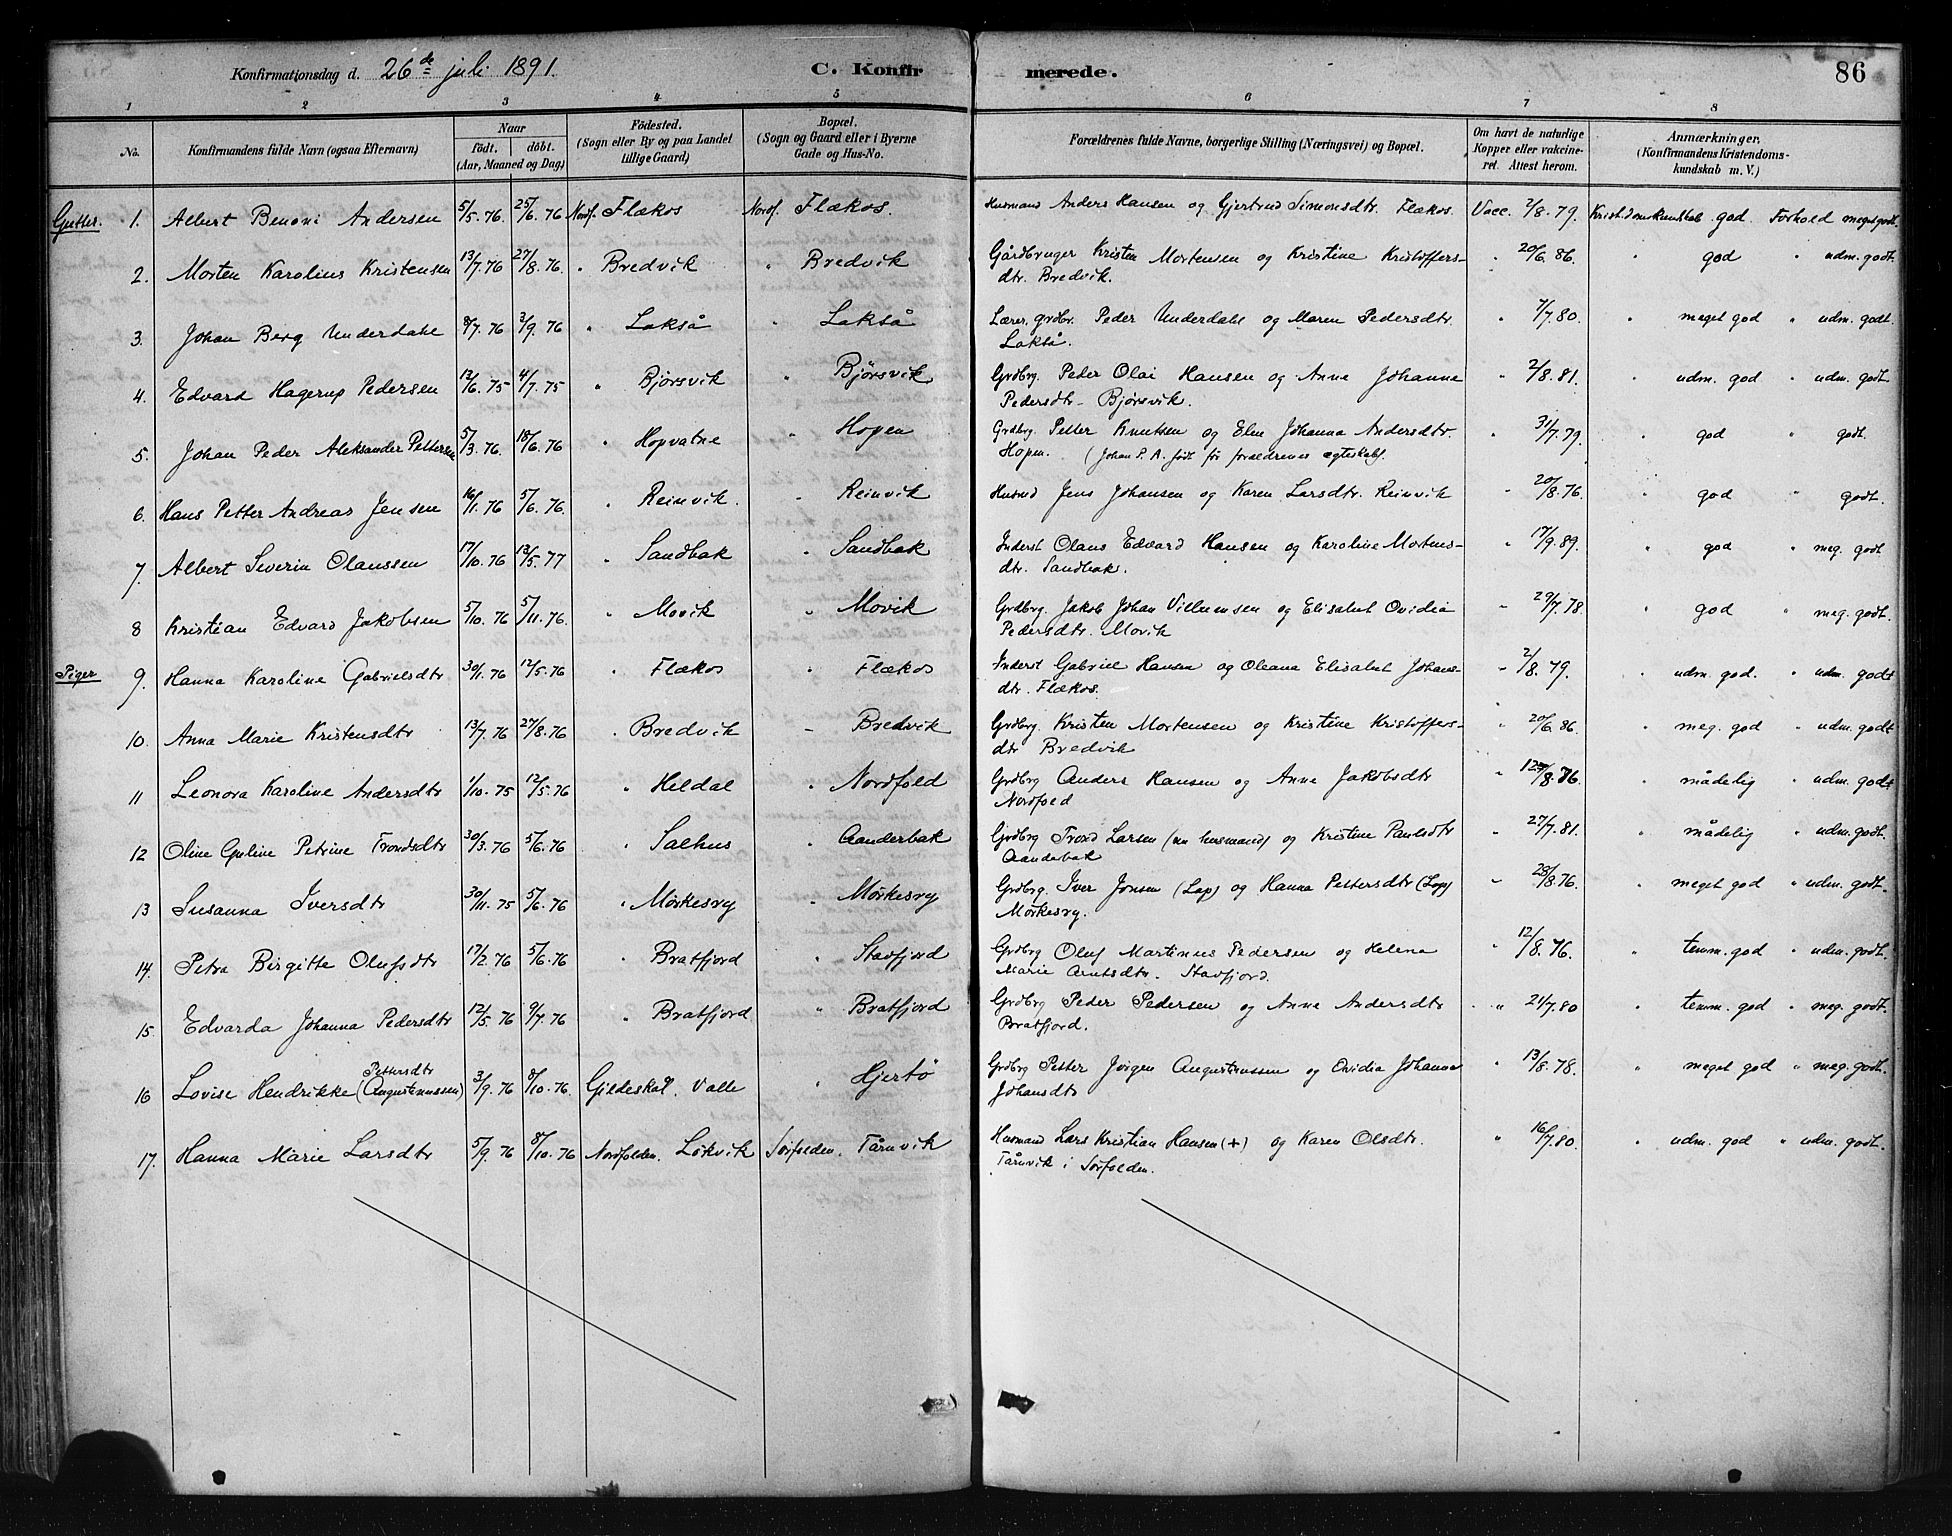 Konfirmationsdag d. 26de juli 1891. C. Konfirmerede. 86
1 2 3 4 5 6 7 8
No. Konfirmandens fulde Navn (ogsaa Efternavn) Naar födt. döbt. (Aar, Maaned og Dag) Födested. (Sogn eller By og paa Landet tillige Gaard) Bopæl. (Sogn og Gaard eller i Byerne Gade og Hus-No. Forældrenes fulde Navne, borgerlige Stilling (Næringsvei) og Bopæl. Om havt de naturlige Kopper eller vakcineret. Attest herom. Anmærkninger. (Konfirmandens Kristendomskundskab m. V.)
Gutter. 1. Albert Benoni Andersen 5/5 76 25/6 76 Nordf. Flækos Nordf. Flækos. Husmand Anders Hansen og Gjertrud Simonsdtr. Flækos. Vacc. 2/8 79. Kristendomskundskab god Forhold meget godt.
2. Morten Karolius Kristensen 13/7 76 27/8 76. " Bredvik " Bredvik Gårdbruger Kristen Mortensen og Kristine Kristoffers-
dtr. Bredvik. " 20/6 86. " god " udm. godt.
3. Johan Berg Underdahl 8/7 76 3/9 76 " Lakså " Lakså Lærer, grdbr. Peder Underdahl og Maren Pedersdtr.
Lakså. " 7/7 80. " meget god " udm. godt.
4. Edvard Hagerup Pedersen 12/6 75 4/7 75 " Bjørsvik " Bjørsvik Grdbrg. Peder Olai Hansen og Anne Johanna
Pedersdtr. Bjørsvik. " 2/8 81. " udm. god " udm. godt.
5. Johan Peder Aleksander Pettersen 5/3 76. 18/6 76 " Hopvatne " Hopen Grdbrg. Petter Knutsen og Elen Johanna Andersdtr.
Hopen. (Johan P. A. født før forældrenes ægteskab). " 31/7 79. " god " godt.
6. Hans Petter Andreas Jensen 16/1 76 5/6 76. " Reinvik. " Reinvik Husmd Jens Johansen og Karen Larsdtr. Reinvik " 20/8 76. " god " godt.
7 Albert Severin Olaussen 17/10 76 13/5 77 " Sandbak " Sandbak Inderst Olaus Edvard Hansen og Karoline Mortens-
dtr. Sandbak. " 17/9 89. " god " meg. godt.
8 Kristian Edvard Jakobsen 5/10 76 5/11 76. " Movik " Movik Grdbrg. Jakob Johan Villumsen og Elisabet Ovidia
Pedersdtr. Movik " 29/7 78 " god " meg. godt.
Piger 9. Hanna Karoline Gabrielsdtr 30/1 76 12/5 76 " Flækos " Flækos Inderst Gabriel Hansen og Oleana Elisabet Johans-
dtr. Flækos. " 2/8 79. " udm. god. " udm. godt
10. Anna Marie Kristensdtr 13/7 76 27/8 76 " Bredvik " Bredvik Grdbrg. Kristen Mortensen og Kristine Kristoffers-
dtr Bredvik " 20/6 86. " meg. god " udm. godt
11 Leonora Karoline Andersdtr 1/10 75 12/5 76 " Heldal " Nordfold Grdbrg Anders Hansen og Anne Jakobsdtr
Nordfold " /8 76. " mådelig " udm. godt
12 Oline Guline Petrine Trondsdtr 30/3 76 5/6 76 " Salhus " Aanderbak Grdbrg Trond Larsen (nu husmand) og Kristine Paulsdtr
Aanderbak " 27/7 81. " mådelig " udm. godt.
13 Susanna Iversdtr 30/11 75 5/6 76 " Mörkesvg " Mörkesvg Grdbrg. Iver Jonsen (Lap) og Hanna Pettersdtr (Lap)
Mörkesvg. " 28/8 76. " meget god " udm. godt.
14. Petra Birgitte Olufsdtr 17/2 76 5/6 76 " Bratfjord " Stavfjord Grdbrg Oluf Martinus Pedersen og Helena
Marie Arntsdtr. Stavfjord. " 12/8 76. " temm. god " udm. godt.
15. Edvarda Johanna Pedersdtr 12/5 76 9/7 76 " Bratfjord " Bratfjord Grdbrg Peder Pedersen og Anne Andersdtr
Bratfjord. " 21/7 80 " temm. god " meg. godt.
16 Lovise Hendrikke Pettersdtr (Augustinussen) 3/9 76 8/10 76. Gildeskål Valle " Hjertø Grdbrg Petter Jørgen Augustinussen og Ovidia Johanna
Johansdtr " 13/8 78. " meget god " meg. godt.
17. Hanna Marie Larsdtr 5/9 76 8/10 76 Nordfolden. Lökvik Sörfolden. Tårnvik Husmand Lars Kristian Hansen (+) og Karen Olsdtr.
Tårnvik i Sörfolden. " 16/7 80. " udm. god " udm. godt.